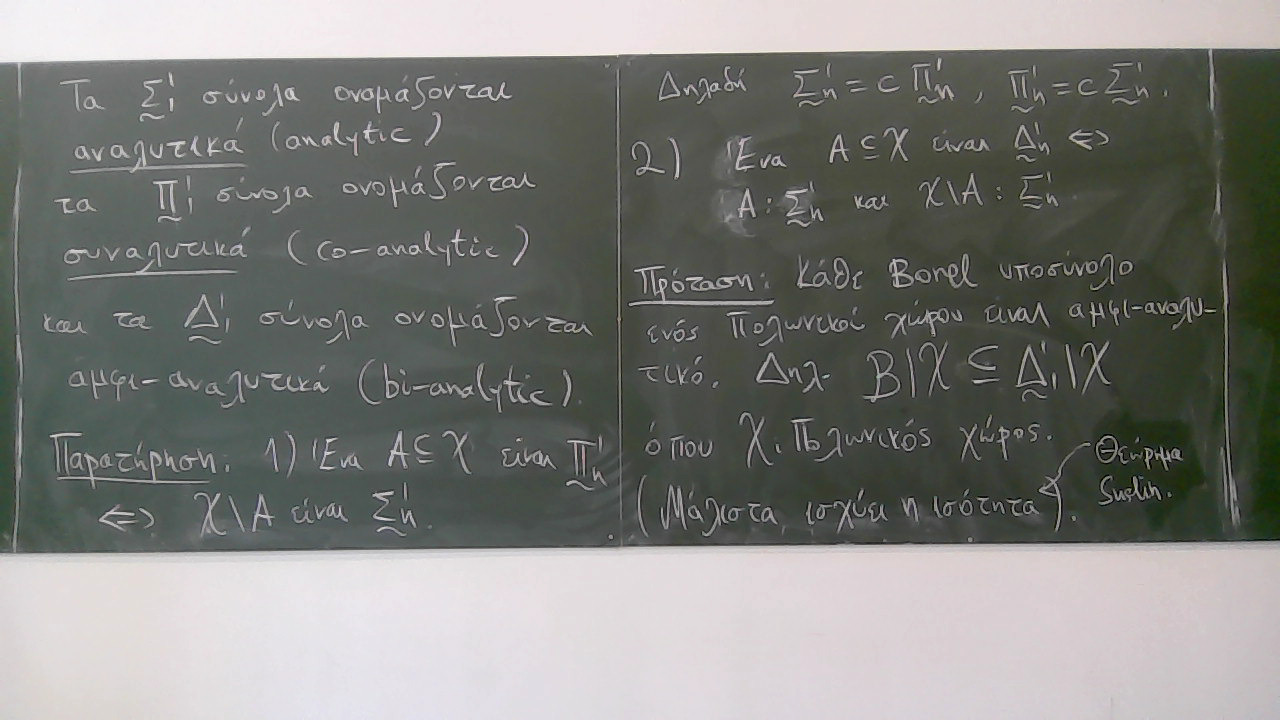 Τα Σ̰¹₁ σύνολα ονομάζονται
αναλυτικά (analytic)
τα Π̰¹₁ σύνολα ονομάζονται
συναλυτικά (co-analytic)
και τα Δ̰¹₁ σύνολα ονομάζονται
αμφι-αναλυτικά (bi-analytic).
Παρατήρηση: 1) Ένα A ⊆ X είναι Π̰¹ₙ
⇔ X \ A είναι Σ̰¹ₙ.
Δηλαδή Σ̰¹ₙ = c Π̰¹ₙ, Π̰¹ₙ = c Σ̰¹ₙ.
2) Ένα A ⊆ X είναι Δ̰¹ₙ ⇔
A : Σ̰¹ₙ και X \ A : Σ̰¹ₙ.
Πρόταση: Κάθε Borel υποσύνολο
ενός Πολωνικού χώρου είναι αμφι-αναλυ-
τικό. Δηλ. B|X ⊆ Δ̰¹₁|X
όπου X: Πολωνικός χώρος.
(Μάλιστα, ισχύει η ισότητα).
Θεώρημα
Suslin.